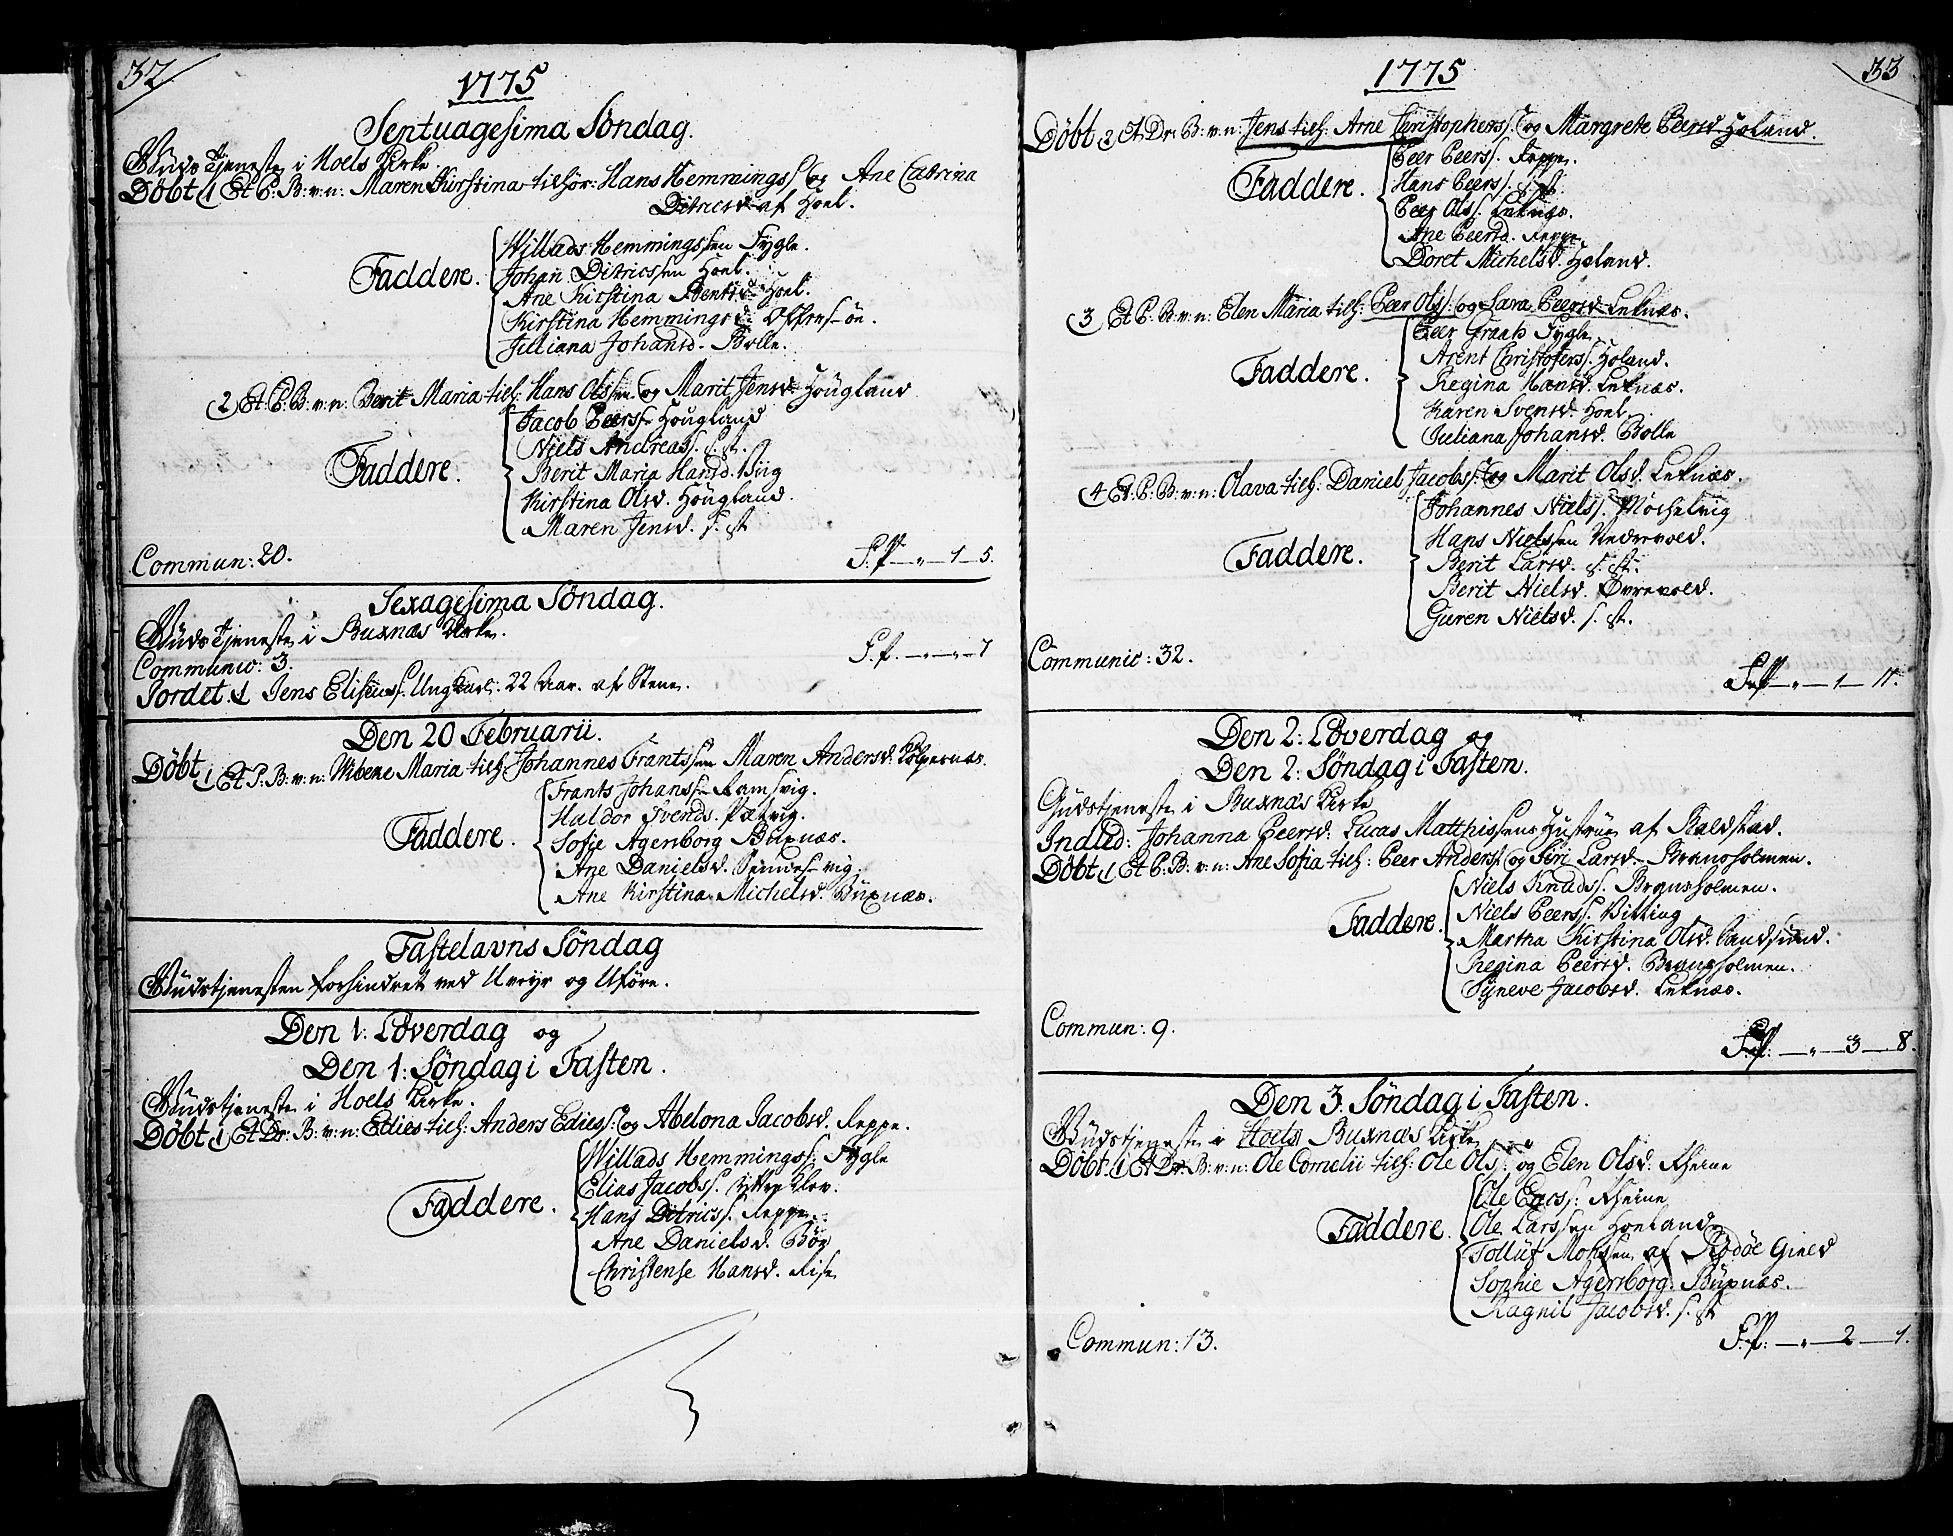 32.
1775
Septuagesima Søndag.
Gudstjeneste i Hoels Kirke.
Døbt 1 Et P. B: v: n: Maren Kirstina tilhör: Hans Hemmingss. og Ane Catrina
Ditricsd. af Hoel.
Faddere.
Willads Hemmingssen Fygle.
Johan Ditricssen Hoel.
Ane Kirstina Bentsd. Hoel.
Kirstina Hemmingsd. Offersöe.
Juliana Johansd. Bolle.
2 Et P: B: v: n: Berit Maria tilh: Hans Olssen og Marit Jensd. Hougland
Faddere.
Jacob Peerss. Hougland
Niels Andreass. s. st.
Berit Maria Hansd. Viig
Kirstina Olsd. Hougland.
Maren Jensd. s. st
Commun: 20.
F.f. — „ — 1 — 5.
Sexagesima Søndag.
Gudstjeneste i Buxnæs Kirke.
Communic: 3.
F. f. — „ — „ — 7
Jordet. 1 Jens Eliseuss. Ung Karl: 22 Aar. af Steene.
Den 20 Februarii.
Døbt 1 Et P. B: v: n: Wibeke Maria tilh: Johannes Frantssen Maren Andersd.
Faddere.
Frants Johanss. Ramsvig.
Haldor Svends. Petvig.
Sofie Agerborg Buxnæs.
Ane Danielsd.
Ane Kirstina Michelsd. Buxnæs.
Fastelavns Søndag
Gudstjenesten forhindret ved Uveyr og Uføre.
Den 1: Løverdag og
Den 1: Søndag i Fasten.
Gudstjeneste i Hoels Kirke.
Døbt 1 Et Dr: B: v: n: Edies tilh: Anders Ediess: og Abelona Jacobsd. Reppe.
Faddere.
Willads Hemmingss. Fygle
Elias Jacobss. Yttre Klev.
Hans Ditricss. Reppe.
Ane Danielsd. Böe
Christense Hansd. Rise
33
1775
Døbt 2 Et Dr: B: v: n: Jens tilh: Arne Christopherss. og Margrete Peersd. Holand.
Faddere.
Peer Peerss. Reppe.
Hans Peerss. s. st.
Peer Olss. Leknæs.
Ane Peersd. Reppe
Doret Michelsd. Holand.
3 Et P: B: v: n: Elen Maria tilh: Peer Olss: og Sara Peersd. Leknæs.
Faddere.
Peer Graah Fygle
Arent Christoferss. Holand.
Regina Hansd. Leknæs.
Karen Svensd. Hoel
Juliana Johansd. Bolle
4 Et. P: B: v: n: Olava tilh: Daniel Jacobss. og Marit Olsd. Leknæs.
Faddere.
Johannes Nielss. Morfelvig
Hans Nielssen Nedrevold.
Berit Larsd. s. st.
Berit Nielsd. Øvrevold.
Guren Nielsd. s. st.
Communic: 32.
F.f. — „ — 1 — 11.
Den 2: Løverdag og
Den 2: Søndag i Fasten.
Gudstjeneste i Buxnæs Kirke
Indled: Johanna Peersd. Lucas Matthissens Hustrue af Baldstad.
Døbt 1 Et P: B: v: n: Ane Sofia tilh: Peer Anderss. og Siri Larsd. Brandsholmen.
Faddere.
Niels Knudss. Brandsholmen.
Niels Peerss. Vitting
Martha Kirstina Olsd. Sandsund.
Regina Peersd. Brandsholmen.
Syneve Jacobsd. Leknæs.
Commun: 9.
F.f: — „ — 3 — 8.
Den 3. Søndag i Fasten.
Gudstjeneste i Hoels Buxnæs Kirke
Døbt. 1 Et Dr: B: v: n: Ole Cornelii tilh: Ole Olss: og Elen Olsd. Rheine
Faddere.
Ole Larss: Rheine
Ole Larssen Horland
Tolluf Monsen af Rödöe Gield
Sophie Agersborg. Buxnæs.
Ragnil Jacobsd. s. st
Commun: 13.
F.f: — „ — 2 — 1.